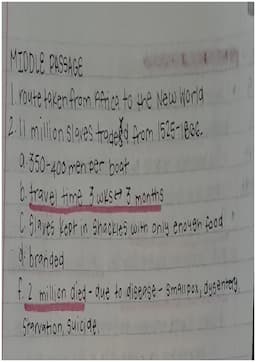 MIDDLE PASSAGE
1. route taken from Africa to the New World
2. 11 million slaves traded from 1525-1866.
a. 350-400 men per boat
b. travel time 3 wks↔3 months
C. Slaves kept in shackles with only enough food
d. branded
f. 2 million died - due to disease - smallpox, dysentery,
Starvation, suicide.